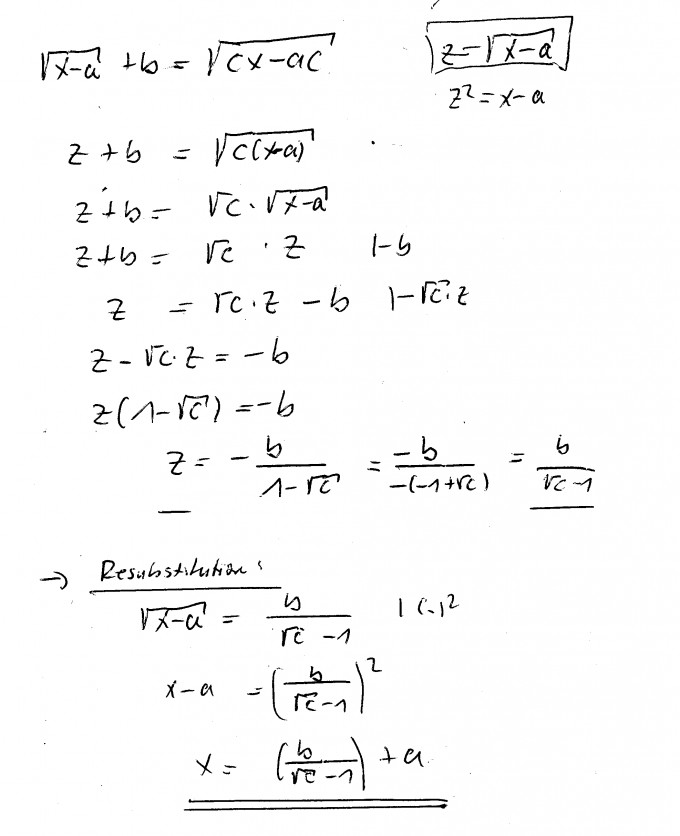 √(x-a) + b = √(cx-ac)    z = √(x-a)
z² = x-a
z + b = √(c(x-a))
z + b = √c · √(x-a)
z + b = √c · z   |-b
z = √c · z - b   |-√c · z
z - √c · z = -b
z(1-√c) = -b
z = - b/(1-√c) = -b/(-(-1+√c)) = b/(√c-1)
→ Resubstitution:
√(x-a) = b/(√c-1)   |(.)²
x-a = (b/(√c-1))²
x = (b/(√c-1)) + a